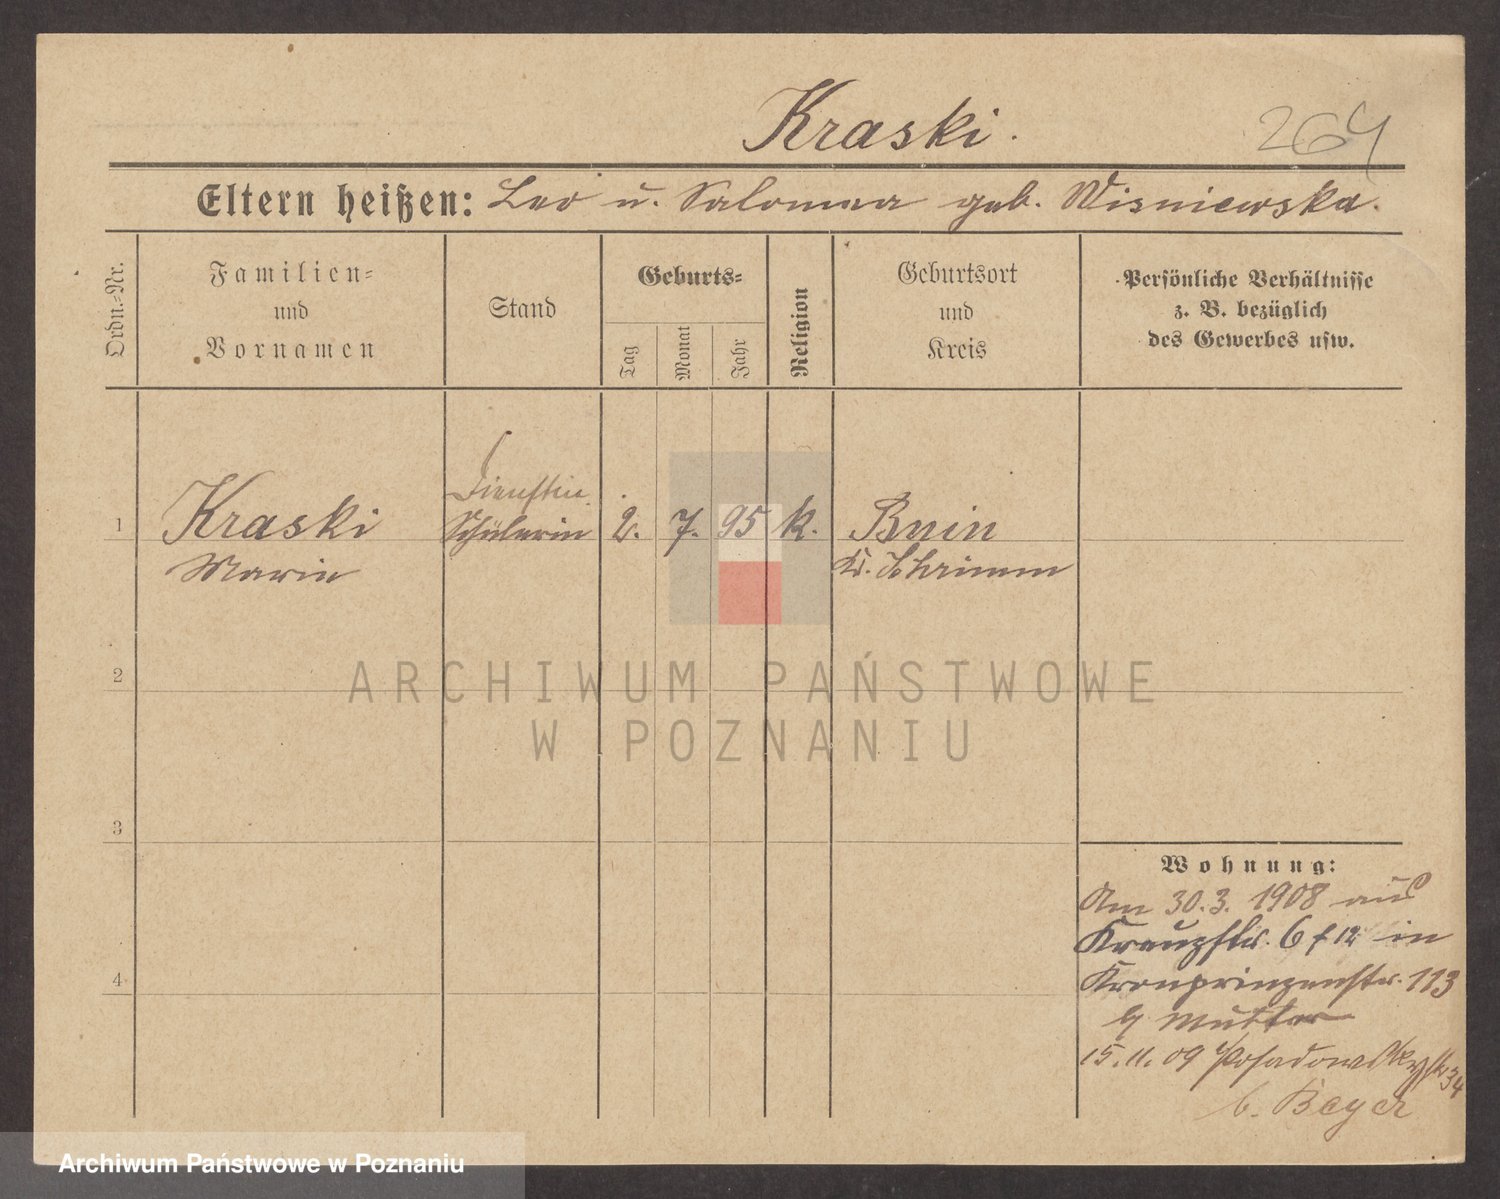 Kraski.
264
Eltern heißen: Leo u. Salomea geb. Wisniewska.
Ordn.-Nr.
Familien-
und
Vornamen
Stand
Geburts-
Tag
Monat
Jahr
Religion
Geburtsort
und
Kreis
Persönliche Verhältnisse
z. B. bezüglich
des Gewerbes usw.
1
Kraski
Marie
Dienstm.
Schülerin
2.
7.
95
k.
Bnin
Kr. Schrimm
2
3
4
Wohnung:
Am 30.3. 1908 aus
Kreuzstr. 6 f 12 in
Kronprinzenstr. 113
b/ Mutter
15.11.09 Posadowskystr 34
b. Beyer
ARCHIWUM PAŃSTWOWE
W POZNANIU
Archiwum Państwowe w Poznaniu